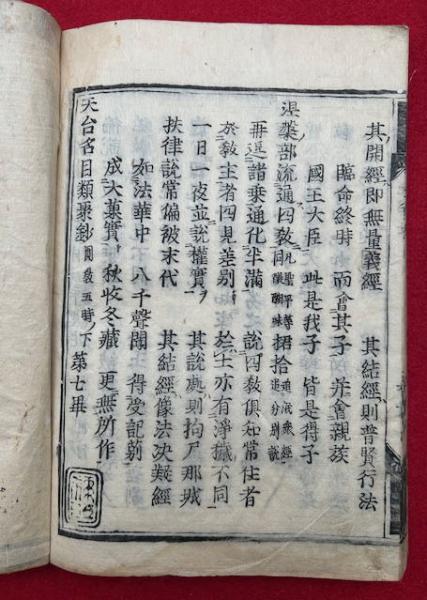 其開經即無量義經　其結經則普賢行法
臨命終時　而會其子　并會親族
國王大臣　此是我子　皆是得子
涅槃部流通四敎同 醍醐味 捃拾 追説 追分別説
再選諸乘通化半滿　說四敎俱知常住者
於敎主者四見差別　於土亦有淨穢不同
一日一夜並說權實ヲ　其說處則拘尸那城
扶律說常偏被末代　其結經像法决疑經
如法華中　八千聲聞　得受記別
成大菓實　秋收冬藏　更無所作
天台名目類聚鈔 圓敎五時 下 第七畢